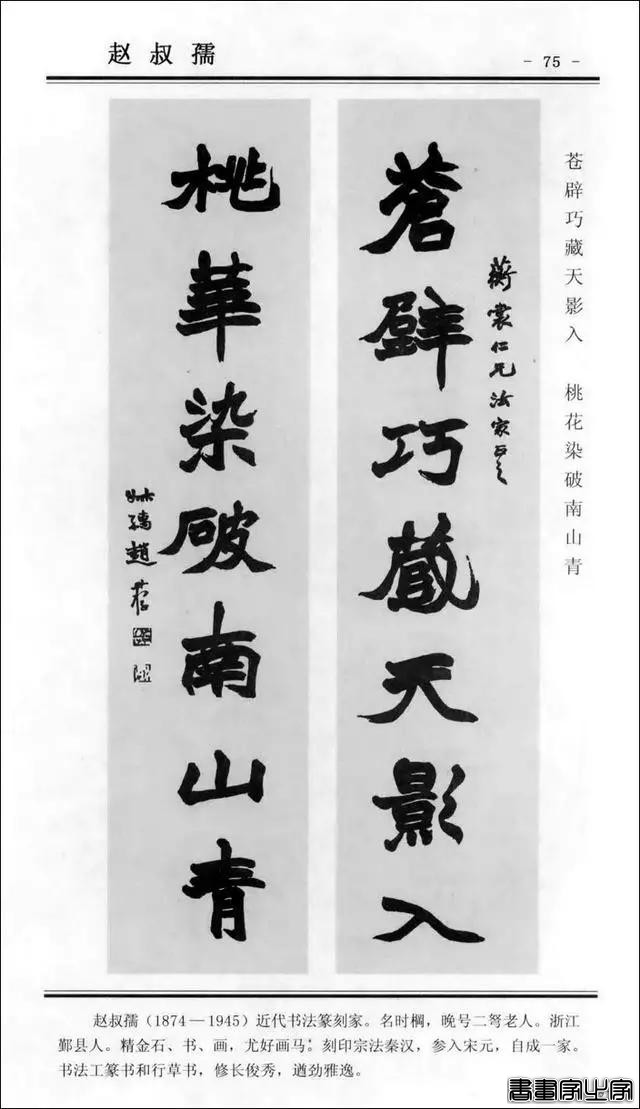 赵叔孺
- 75 -
苍辟巧藏天影入 桃花染破南山青
蘅裳仁兄法家正之
蒼壁巧藏天影入
桃華染破南山青
叔孺趙
赵叔孺（1874—1945）近代书法篆刻家。名时棡，晚号二弩老人。浙江
鄞县人。精金石、书、画，尤好画马。刻印宗法秦汉，参入宋元，自成一家。
书法工篆书和行草书，修长俊秀，遒劲雅逸。
書畫家之家